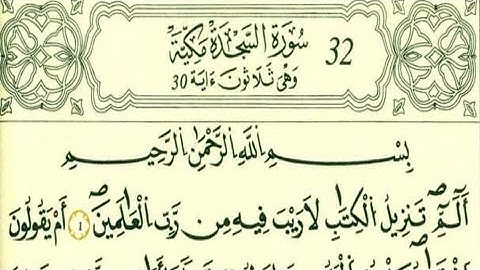 32 سُورَةُ السَّجْدَةِ مَكِّيَّة
وَهِيَ ثَلَاثُونَ ءَايَة 30
بِسْمِ اللَّهِ الرَّحْمَٰنِ الرَّحِيمِ
أَلَٓمِّٓ تَنزِيلُ الْكِتَٰبِ لَا رَيْبَ فِيهِ مِن رَّبِّ الْعَٰلَمِينَ 1 أَمْ يَقُولُونَ